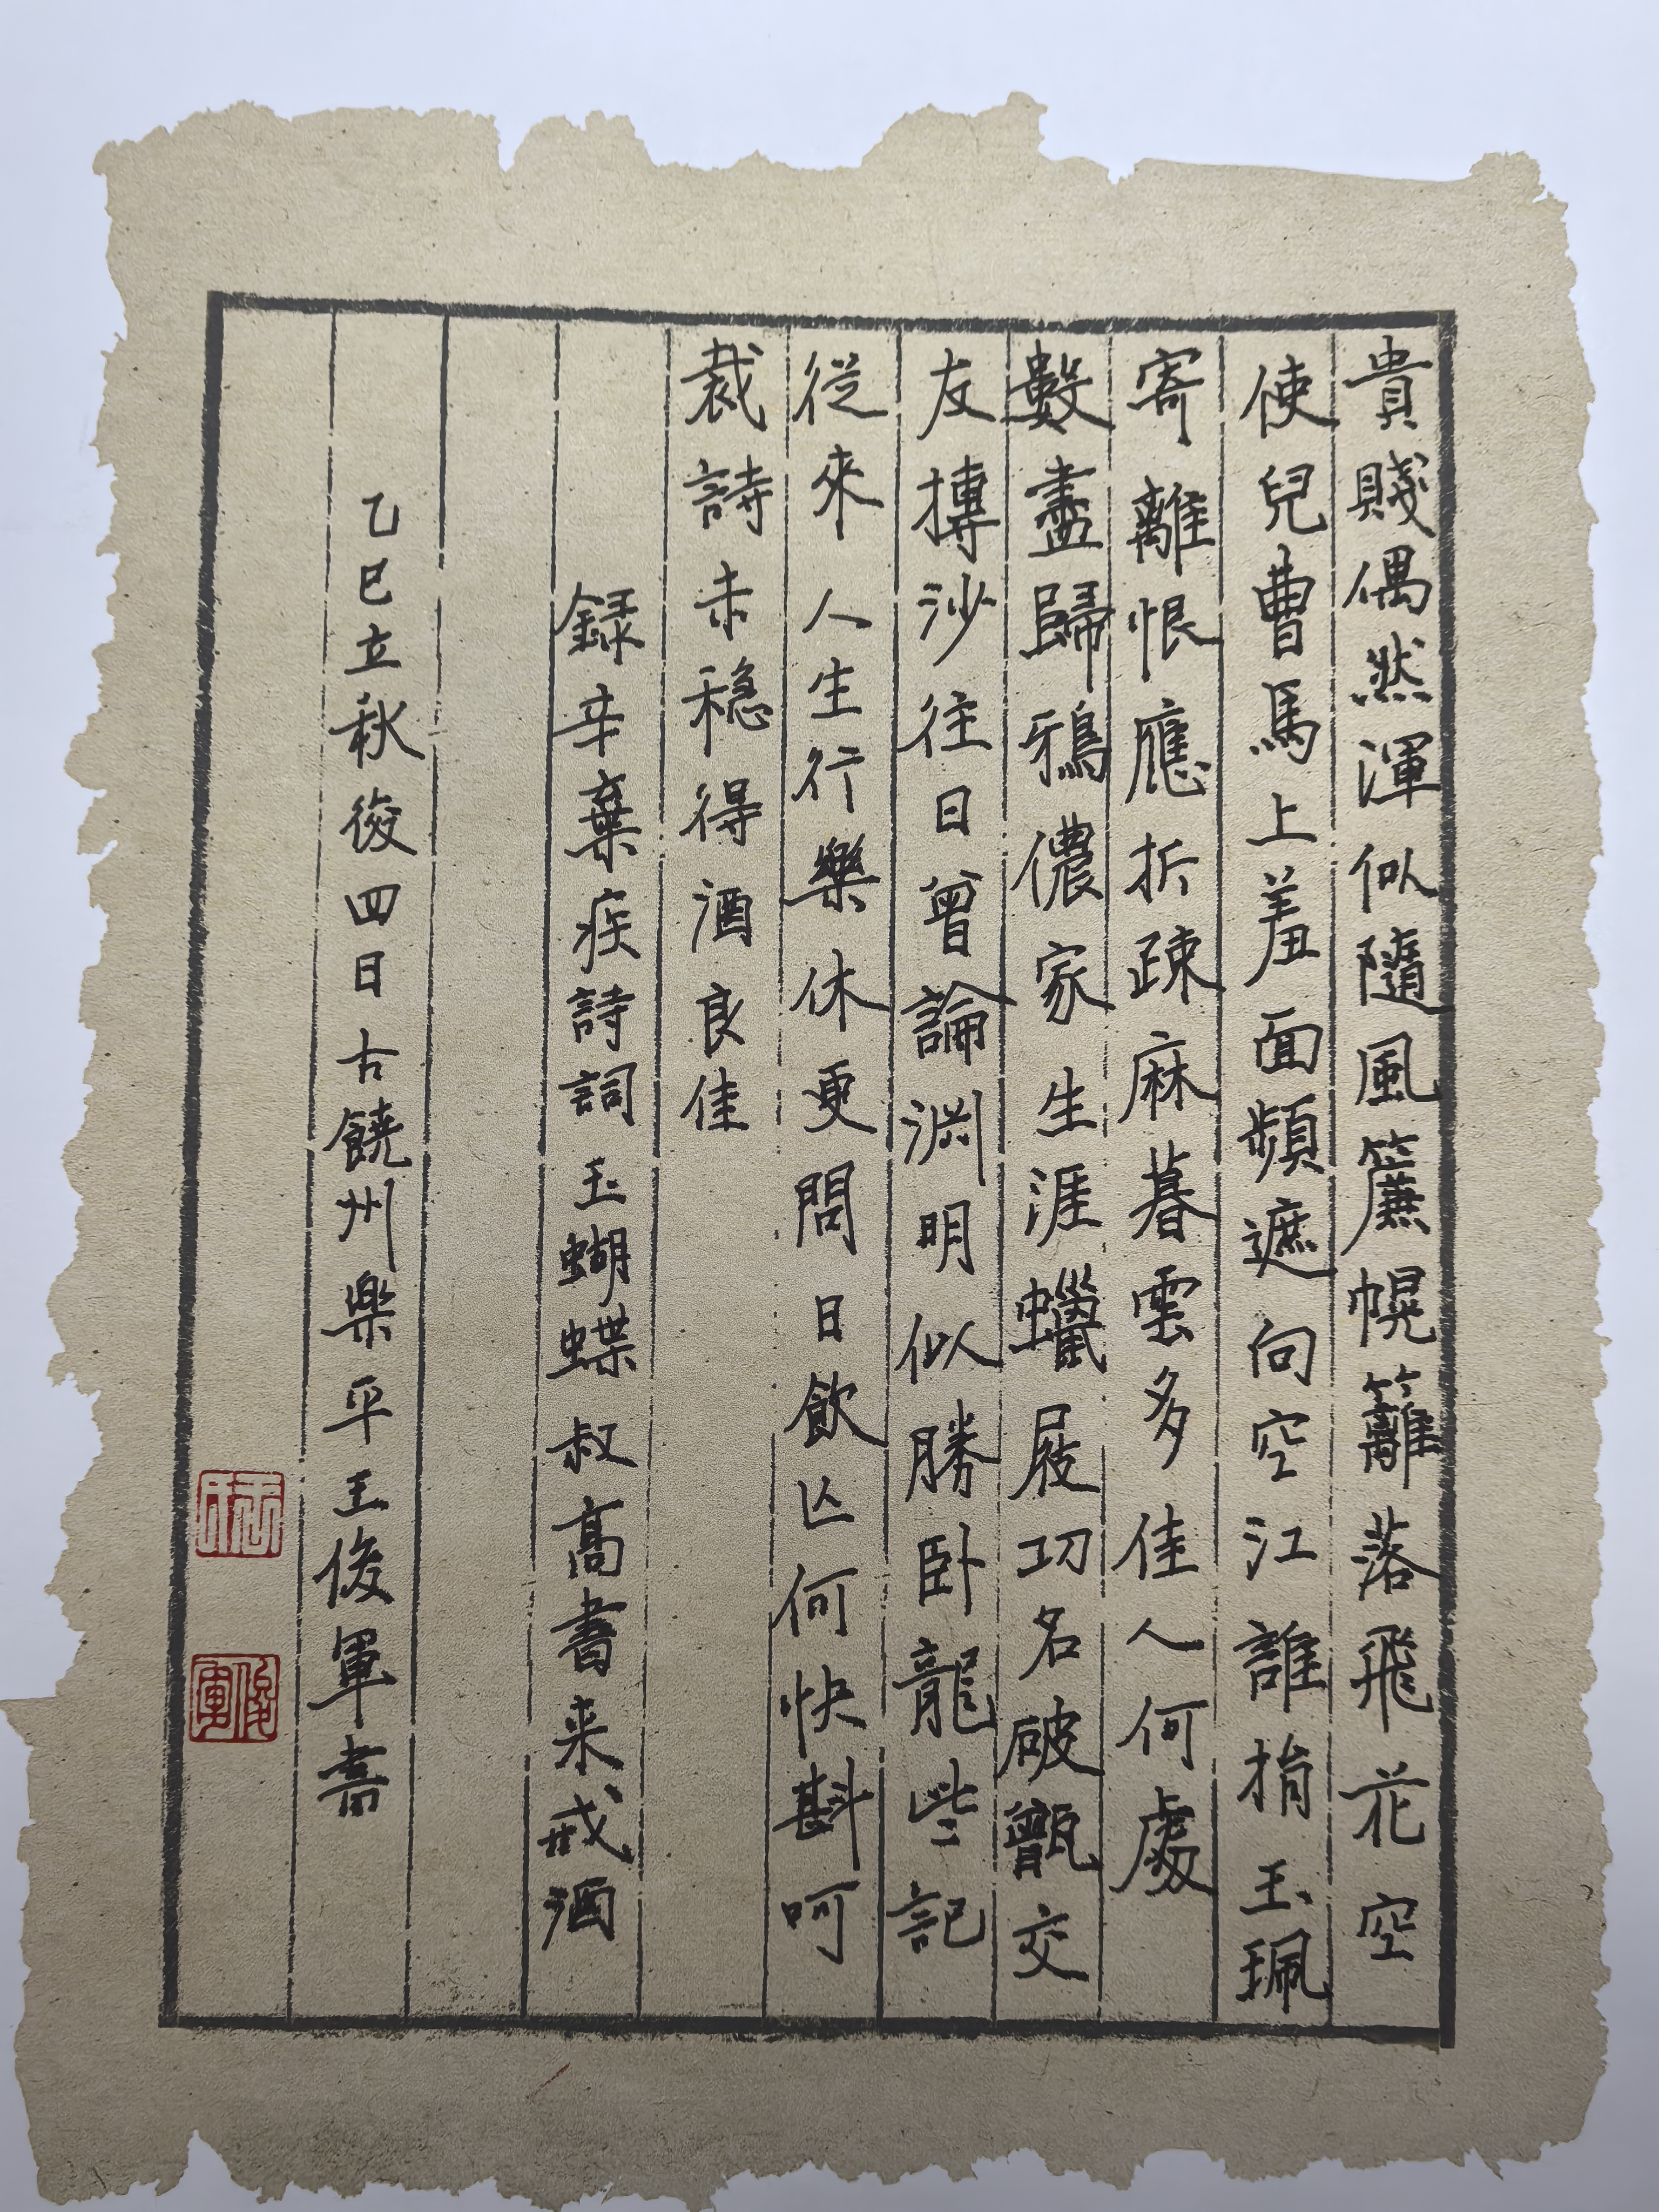 貴賤偶然渾似隨風簾幌籬落飛花空
使兒曹馬上羞面頻遮向空江誰捐玉珮
寄離恨應折疎麻暮雲多佳人何處
數盡歸鴉儂家生涯蠟屐功名破甑交
友摶沙往日曾論淵明似勝卧龍些記
從來人生行樂休更問日飲亾何快斟呵
裁詩未稳得酒良佳
録辛棄疾詩詞玉蝴蝶叔高書来戒酒
乙巳立秋後四日古饒州樂平王俊軍書
俊軍